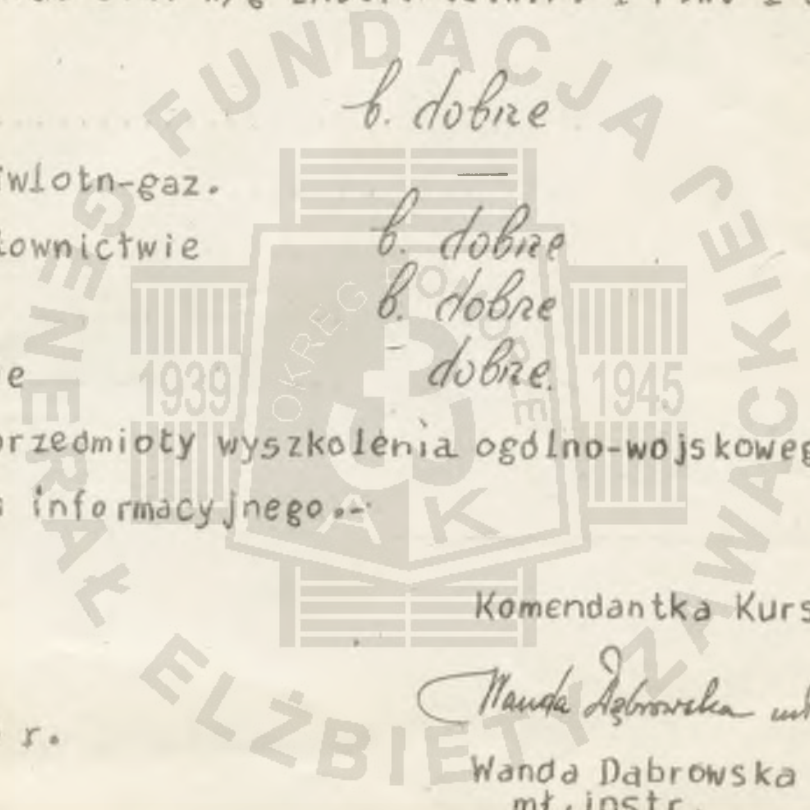 b. dobrze
wlotn-gaz.
ownictwie b. dobrze
b. dobrze
e dobrze.
rzedmioty wyszkolenia ogólno-wojskoweg
informacyjnego.-
Komendantka Kurs
Wanda Dąbrowska mł
r.
Wanda Dąbrowska
mł.instr.
FUNDACJA GENERAŁ ELŻBIETY ZAWACKIEJ
OKRĘG POMORZE
1939 1945
AK